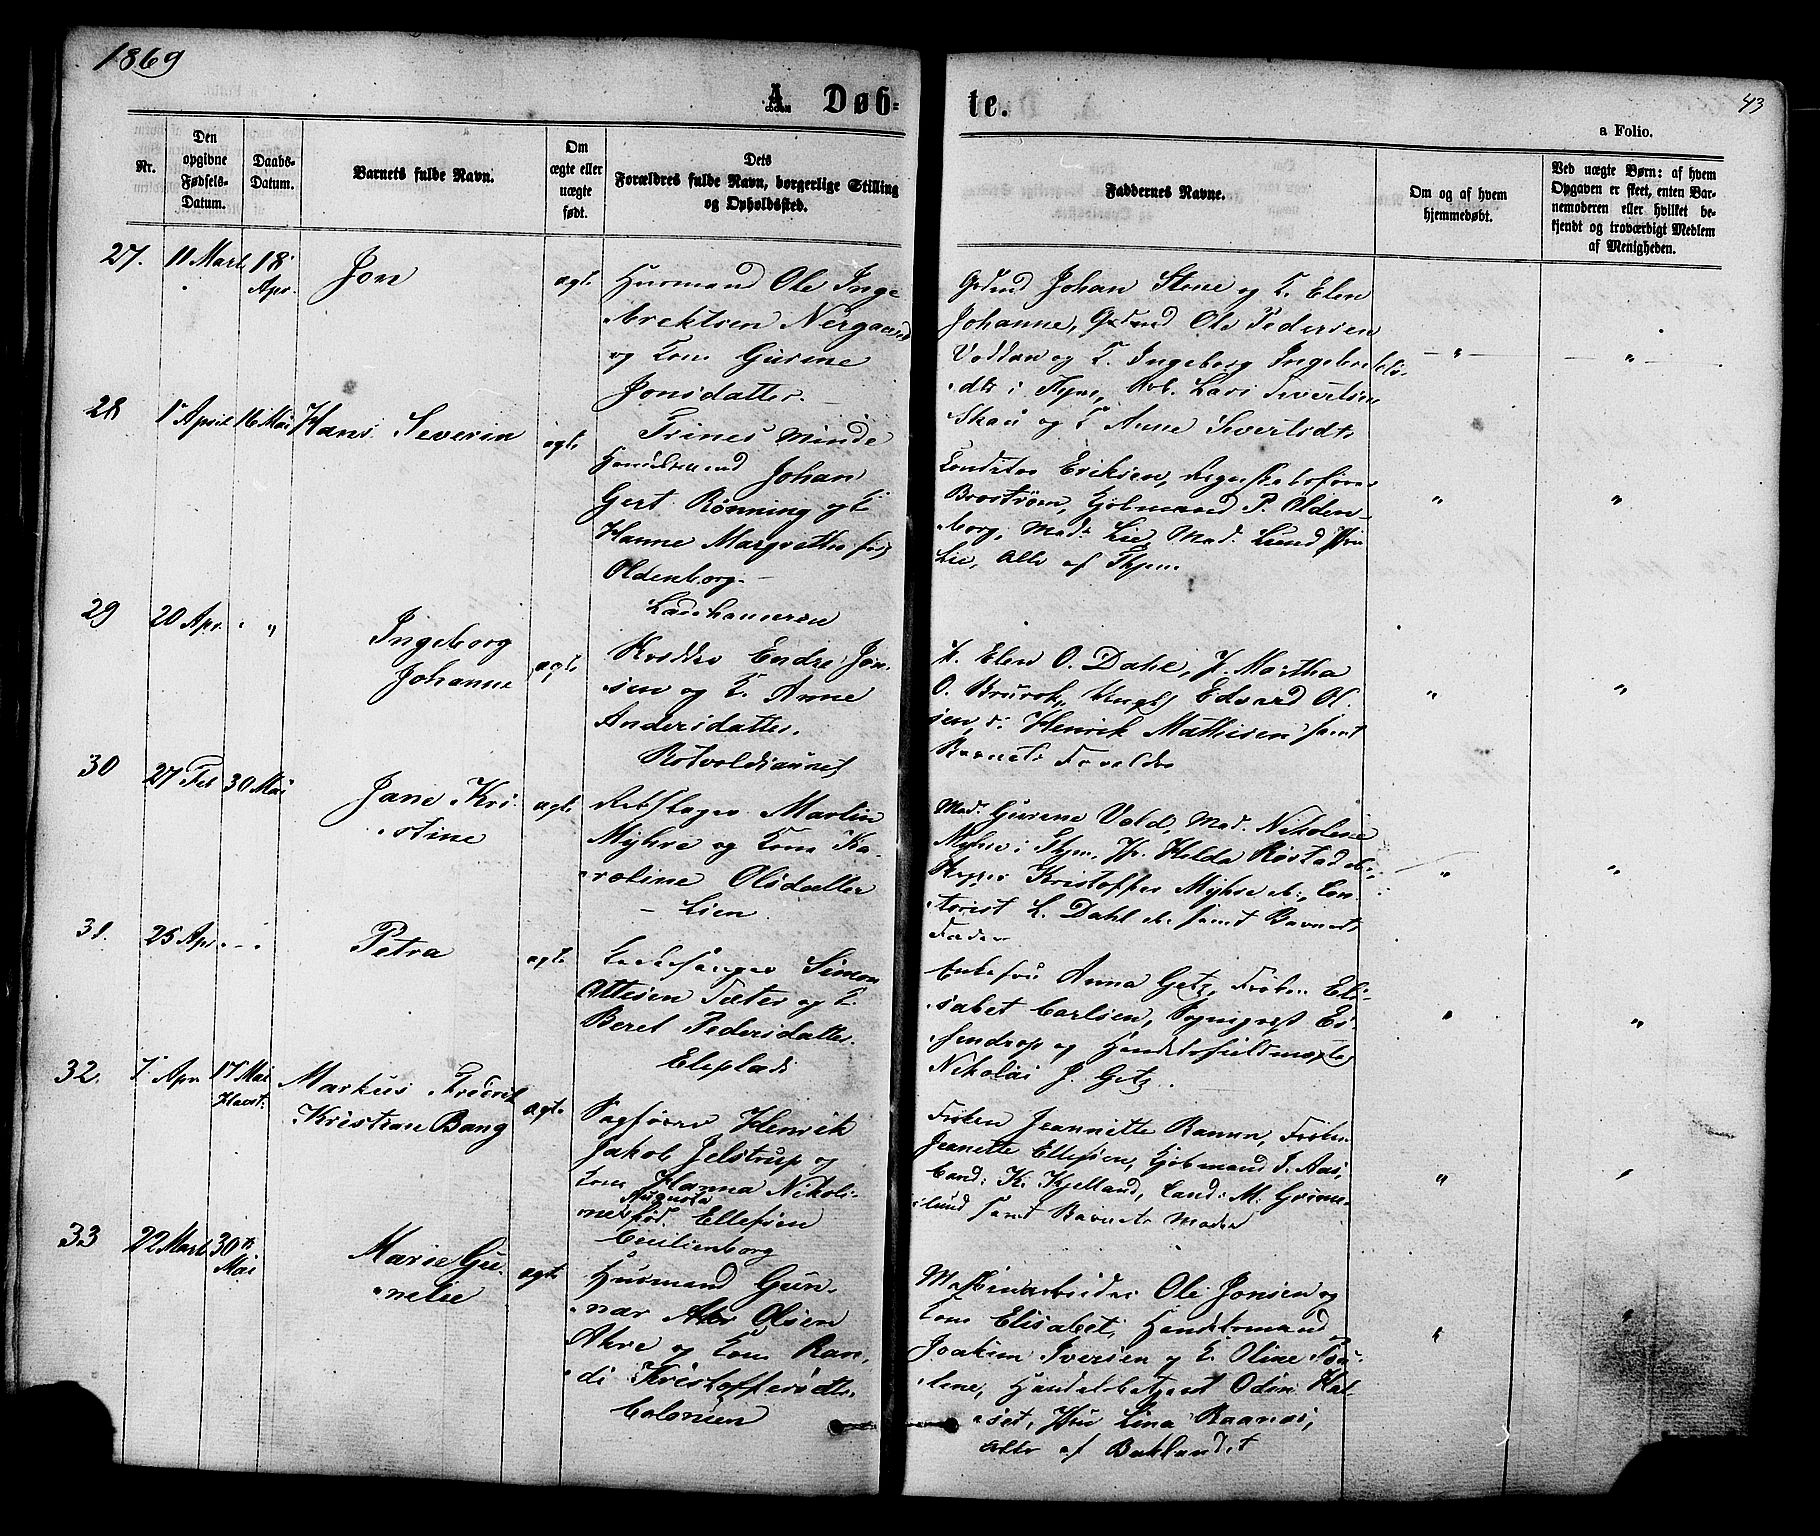 1869
A. Døb-
te.
43
a Folio.
Nr.
Den opgivne Fødsels-Datum.
Daabs-Datum.
Barnets fulde Navn.
Om ægte eller uægte født.
Dets Forældres fulde Navn, borgerlige Stilling og Opholdssted.
Faddernes Navne.
Om og af hvem hjemmedøbt.
Ved uægte Børn: af hvem Opgaven er skeet, enten Barnemoderen eller hvilket bekjendt og troværdigt Medlem af Menigheden.
27. 11 Mart. 18 Apr. Jon ægte
Husmand Ole Inge
brektsen Nergaard
og Kone Gurine
Jonsdatter
Gdmd Johan Stene og K. Elen
Johanne, Gdmd Ole Pedersen
Voddan og K. Ingeborg Ingebrekts
dtr i Thjem, Arb. Lars Sivertsen
Skau og K. Anne Sivertsdtr
28 1 April 16 Mai Hans Severin ægte
Trines Minde
Handelsmand Johan
Gert Rønning og K.
Hanne Margrethe fød
Oldenborg.
Konditor Eriksen, Regnskabsfører
Broström, Kjøbmand P. Olden-
borg, Mad. Lie, Mad. Lund
Lie, Alle af Thjem.
29 20 Apr. " Ingeborg
Johanne ægte
Ladehameren
Endre Jon
sen og K. Anne
Andersdatter.
K. Elen O. Dahl, J. Martha
O. Brurok, Ungk Edvard Ol
sen, d: Henrik Mathisen samt
Barnets Forældre
30 27 Feb 30 Mai Jane Kri
stine ægte
Rotvoldsaunet
Rebslager Martin
Myhre og Kone Ka-
roline Olsdatter
Lien
Mad. Gurine Vold, Mad. Nikoline
Myhre i Thjem, Hilda Røstad
Kristoffer Myhre Con
torist L. Dahl samt Barnets
Fader
31. 25 Apr. Petra ægte
Simon
Ottesen Sæter og K.
Beret Pedersdatter
Eleplads
Enkefru Anna Getz, Frøken Eli-
sabet Carlsen, Sogneprest Es-
sendrop og Handelsfuldmægtig
Nikolai J. Getz.
32. 7 Apr. 17 Mai Markus Fredrik
Kristian Bang ægte
Sagfører Henrik
Jakob Jelstrup og
Kone Hanna Nikoli-
Augusta
ne fød. Ellefsen
Cecilienborg
Frøken Jeannette Ranna, Frøken
Jeanette Ellefsen, Kjøbmand I. Aas,
Cand: K. Kjelland, Cand: M. Grims-
lund samt Barnets Moder
33 22 Mart. 30te Mai Marie Gu
nelie ægte
Husmand Gun
nar Olsen
Akre og Kone Ran
di Kristoffersdtr.
Colonien
Maskinarbeider Ole Jonsen og
Kone Elisabet, Handelsmand
Joakim Iversen og K. Oline Pau-
line, Handelsbetjent Odin Hal
set, Lina Raanæs,
alle af Baklandet